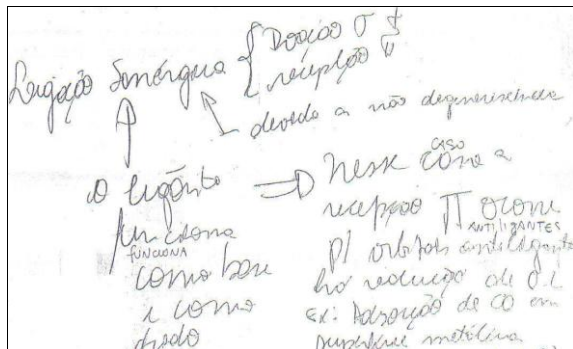 Ligação Sinérgica { Doação σ e
recepção π
devido a não degenerescência
o ligante
funciona
FUNCIONA
como base
e como
ácido
⇒ Nesse caso a
recepção π ocorre
ANTILIGANTES
p/ orbitais antiligante
há redução de O.L
Ex: Adsorção de CO em
superfície metálica